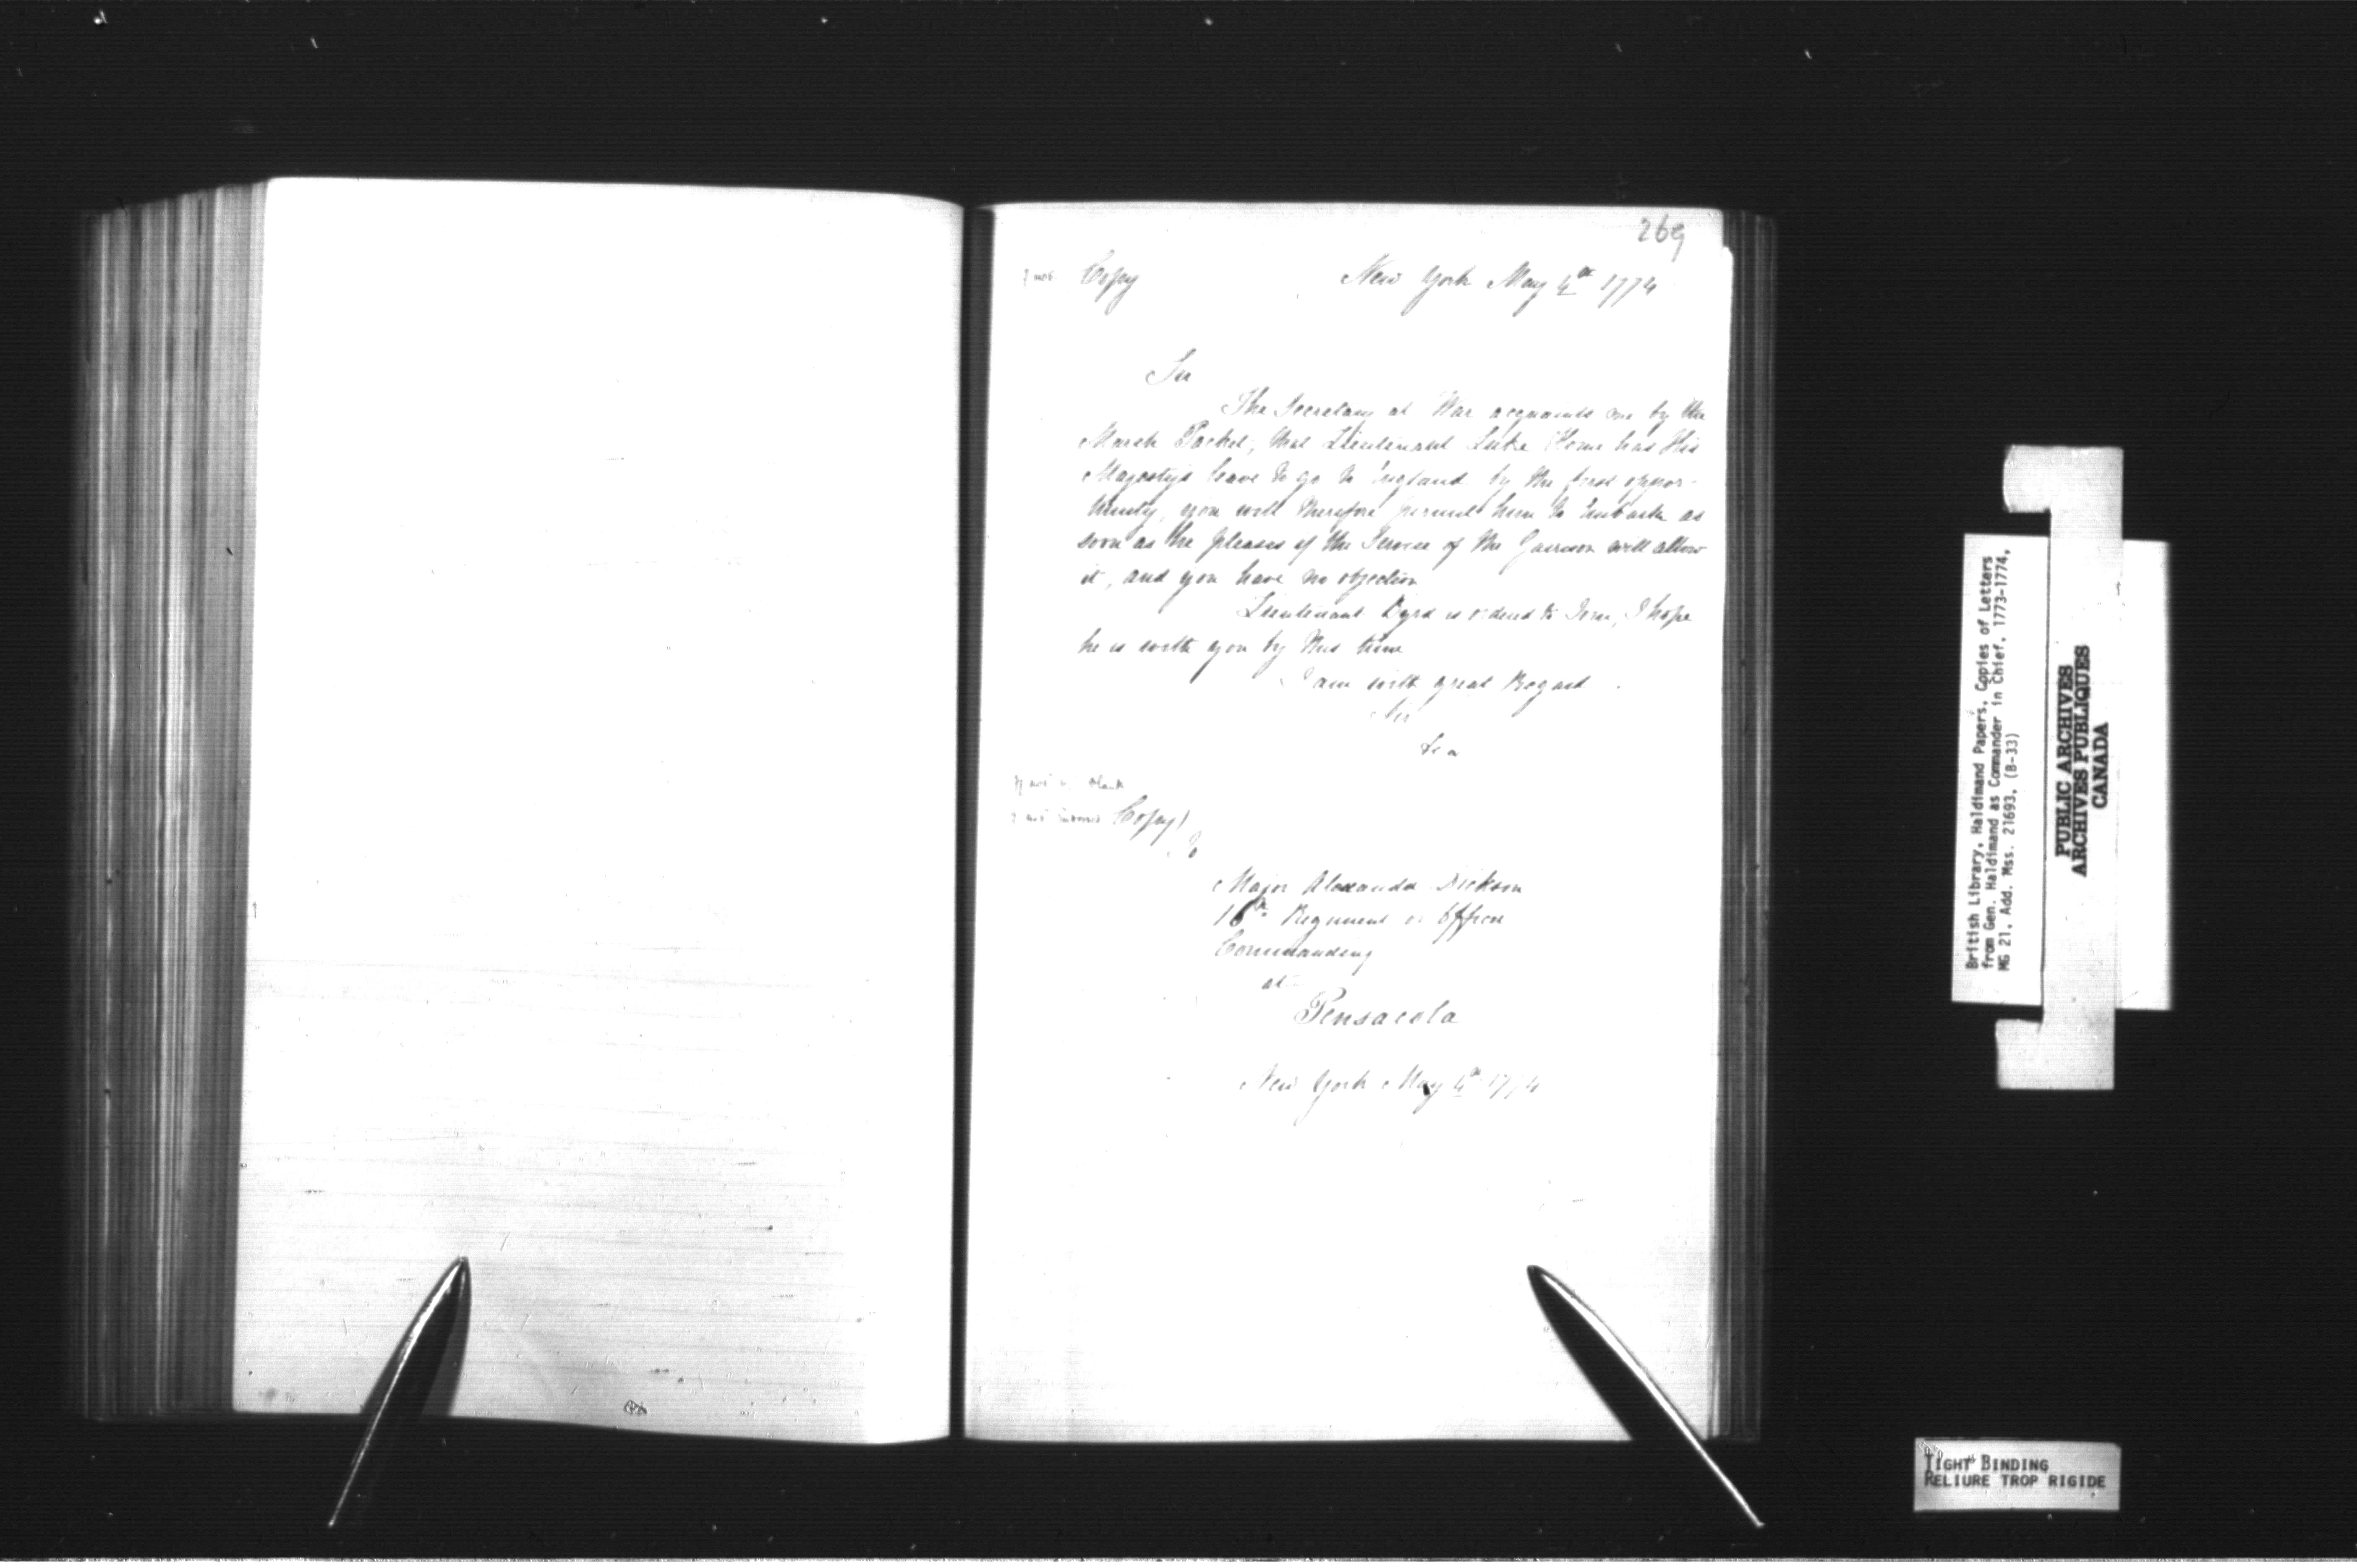 269
Copy New York May 4th 1774
Sir
The Secretary at War acquaints me by the
March Packet, that Lieutenant Luke Home has His
Majesty's leave to go to England by the first oppor-
tunity, you will therefore permit him to embark as
soon as he pleases if the Service of the Garrison will allow
it, and you have no objection
Lieutenant Byrd is ordered to Join, I hope
he is with you by this time
I am with great Regard
Sir
&ca
blank
Copy)
To
Major Alexander Dickson
16th Regiment or Officer
Commanding
at
Pensacola
New York May 4th 1774
British Library, Haldimand Papers, Copies of Letters
from Gen. Haldimand as Commander in Chief, 1773-1774,
MG 21, Add. Mss. 21693, (B-33)
PUBLIC ARCHIVES
ARCHIVES PUBLIQUES
CANADA
TIGHT BINDING
RELIURE TROP RIGIDE